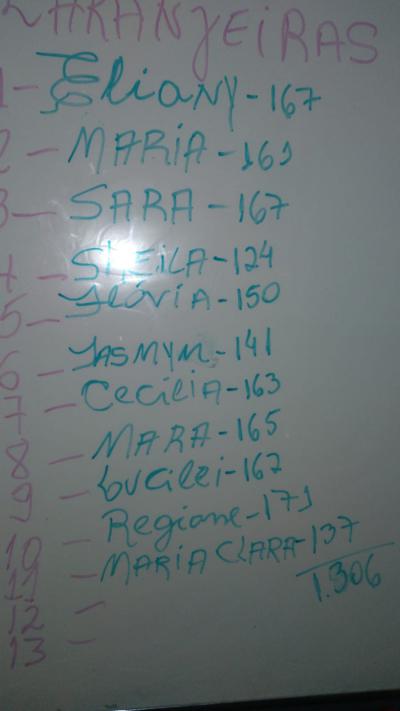 LARANJEIRAS
1 - Eliany - 167
2 - MARIA - 161
3 - SARA - 167
4 - SHEILA - 124
5 - FLÓVIA - 150
6 - YASMYM - 141
7 - CECILIA - 163
8 - MARA - 165
9 - Lucilei - 167
10 - Regiane - 171
11 - MARIA CLARA - 137
12 -
13 -
1.306